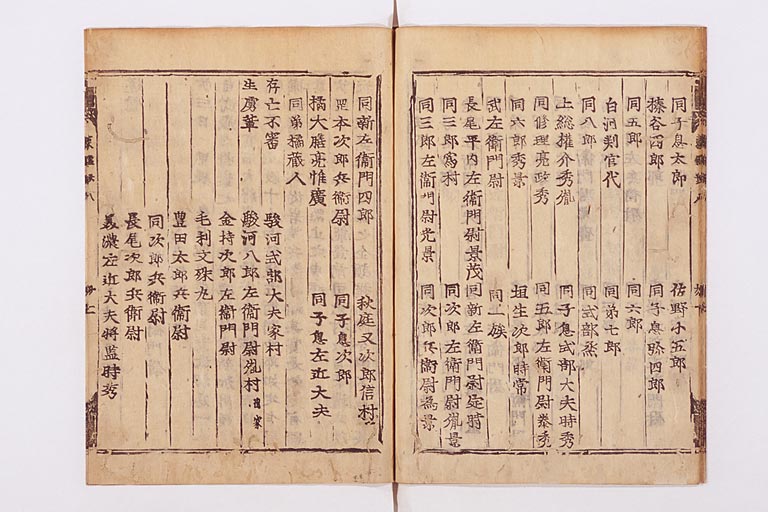 同子息太郎　佐野小五郎
榛谷四郎　同子息弥四郎
同五郎　同六郎
白河判官代　同弟七郎
同八郎　同式部丞
上総權介秀胤　同子息式部大夫時秀
同修理亮政秀　同五郎左衛門尉泰秀
同六郎秀景　垣生次郎時常
武左衛門尉　同一族
長尾平内左衛門尉景茂　同新左衛門尉定時
同三郎為村　同次郎左衛門尉胤景
同三郎左衛門尉光景　同次郎兵衛尉為景
同新左衛門四郎　秋庭又次郎信村
岡本次郎兵衛尉　同子息次郎
橘大膳亮惟廣　同子息左近大夫
同弟橘蔵人
存亡不審　駿河式部大夫家村
生虜輩　駿河八郎左衛門尉胤村
金持次郎左衛門尉
毛利文殊丸
豊田太郎兵衛尉
同次郎兵衛尉
長尾次郎兵衛尉
美濃左近大夫将監時秀